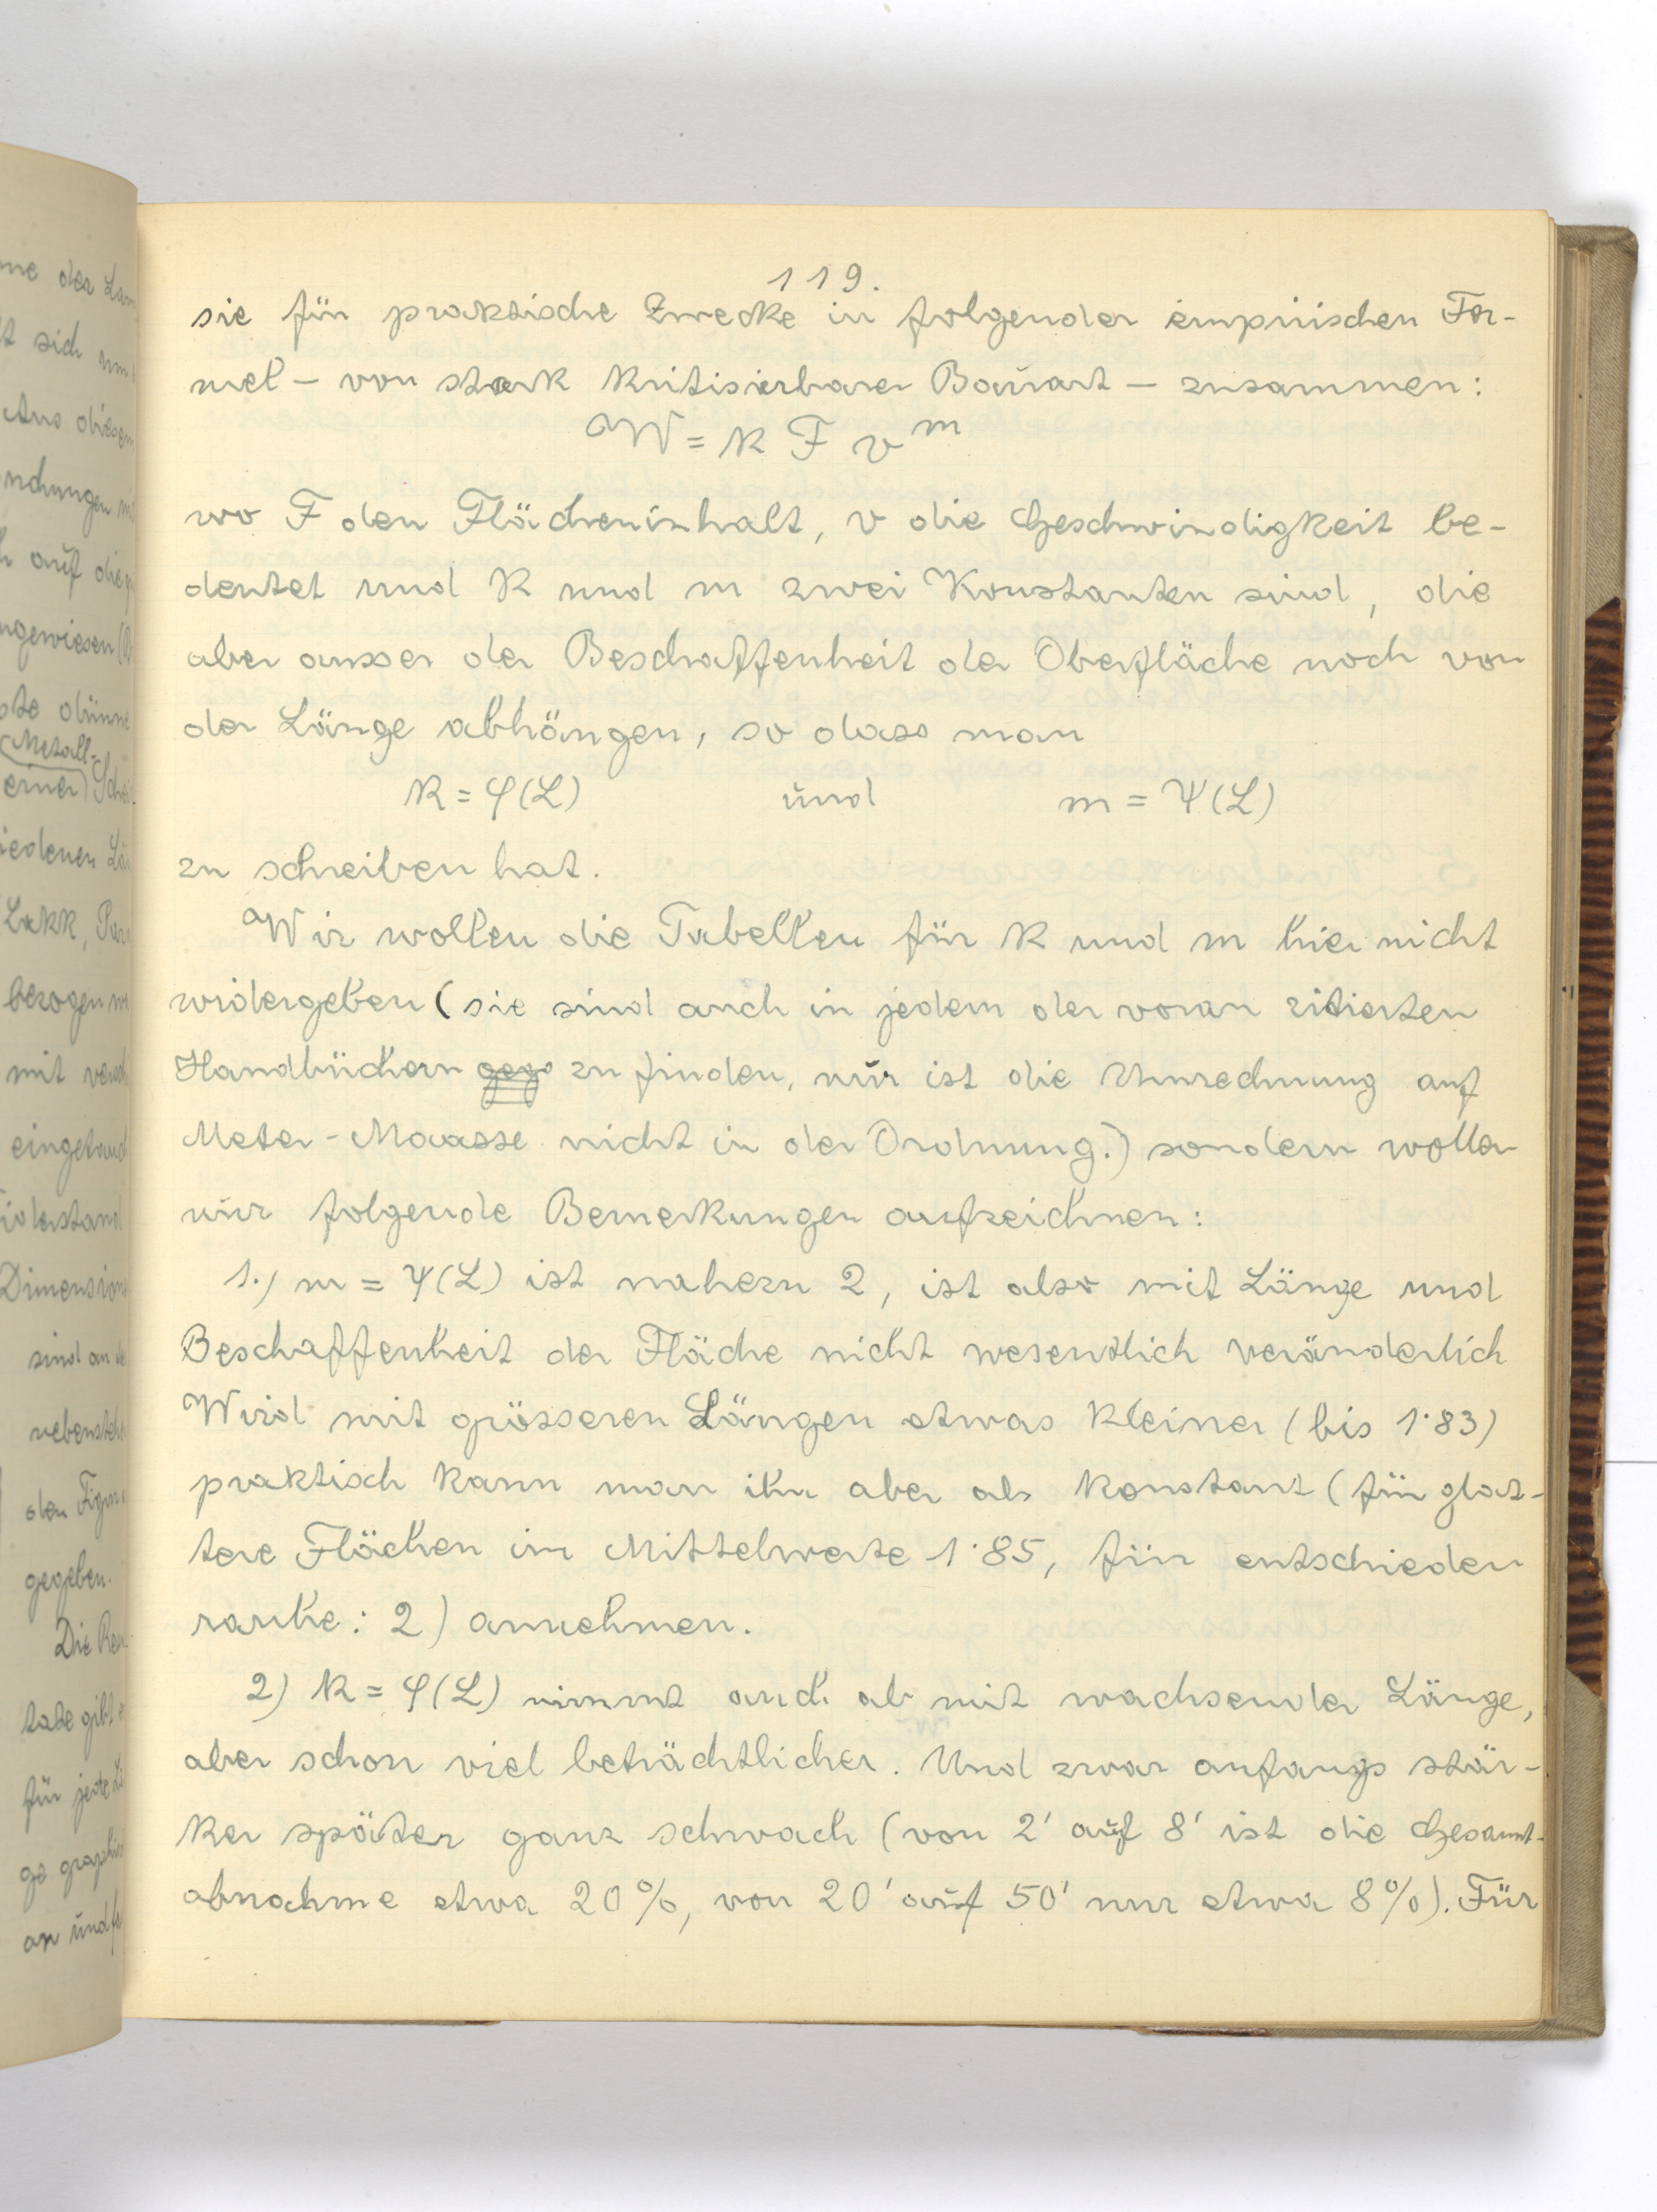 119.
sie für praktische Zwecke in folgender empirischen For-
mel – von stark kritisierbarer Bauart – zusammen:
W = k F v^m
wo F den Flächeninhalt, v die Geschwindigkeit be-
deutet und k und m zwei Konstanten sind, die
aber ausser der Beschaffenheit der Oberfläche noch von
der Länge abhängen, so dass man
k = φ(L) und m = ψ(L)
zu schreiben hat.
Wir wollen die Tabellen für k und m hier nicht
widergeben (sie sind auch in jedem der voran zitierten
Handbüchern zu finden, nur ist die Umrechnung auf
Meter-Maasse nicht in der Ordnung.) sondern wollen
nur folgende Bemerkungen aufzeichnen:
1.) m = ψ(L) ist nahezu 2, ist also mit Länge und
Beschaffenheit der Fläche nicht wesentlich veränderlich
Wird mit grösseren Längen etwas kleiner (bis 1·83)
praktisch kann man ihn aber als konstant (für glat-
tere Flächen im Mittelwerte 1·85, für entschieden
rauhe: 2) annehmen.
2) k = φ(L) nimmt auch ab mit wachsender Länge,
aber schon viel beträchtlicher. Und zwar anfangs stär-
ker später ganz schwach (von 2' auf 8' ist die Gesamt-
abnahme etwa 20%, von 20' auf 50' nur etwa 8%). Für
me der
t sich
Aus diesen
auf die
ngewiesen
dünne
Metall-
einer
iedenen
Lakk,
bezogen
mit
eingetauch
iderstand
Dimension
sind an
nebensteh
den Figur
gegeben.
Die
tate gibt
für jede
ge graphisch
an und